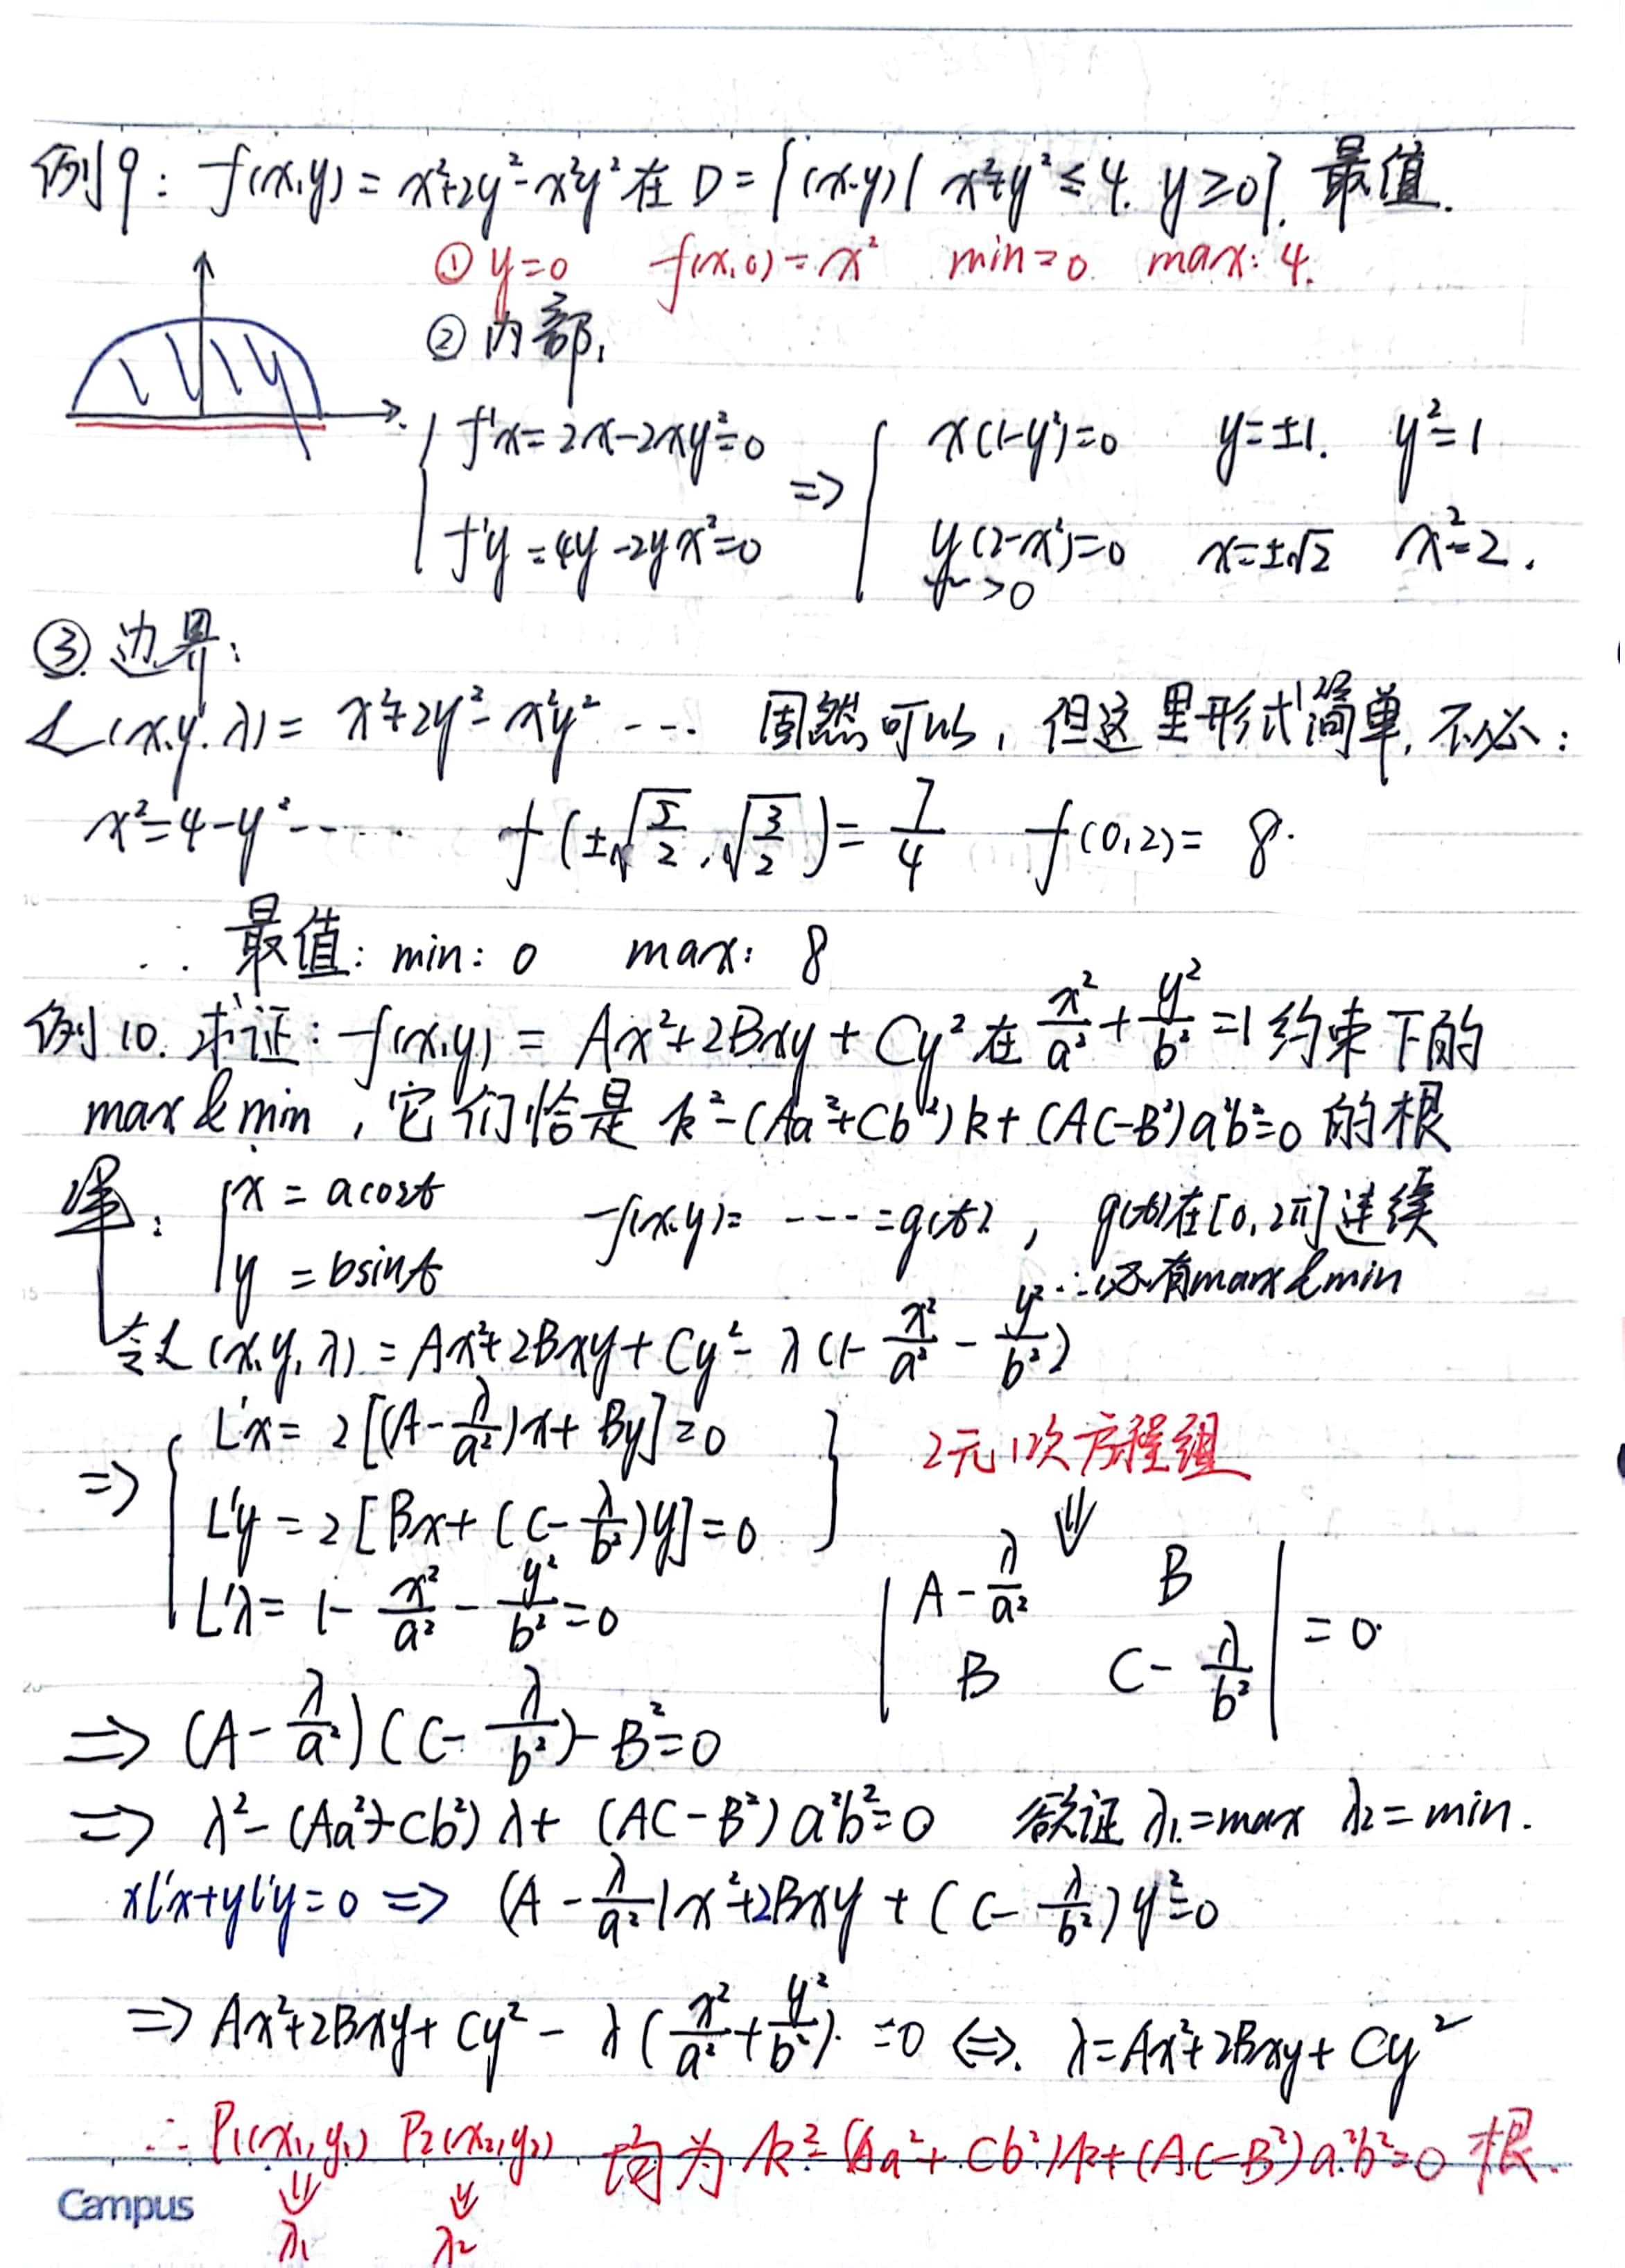 例9: f(x,y) = x²+2y²-x²y² 在 D = {(x,y)| x²+y² ≤ 4, y ≥ 0}. 最值.
① y=0 f(x,0) = x² min=0. max: 4.
② 内部,
{ f'x = 2x-2xy² = 0 ⇒ { x(1-y²)=0 y=±1. y²=1
f'y = 4y-2yx² = 0 y(2-x²)=0 x=±√2 x²=2.
y>0
③. 边界:
L(x,y,λ) = x²+2y²-x²y² --- 固然可以, 但这里形式简单, 不必:
x²=4-y² ----- f(±√(5/2), √(3/2)) = 7/4 f(0,2) = 8.
∴ 最值: min: 0 max: 8
例10. 求证: f(x,y) = Ax²+2Bxy+Cy² 在 x²/a² + y²/b² = 1 约束下的
max & min , 它们恰是 k²-(Aa²+Cb²)k+(AC-B²)a²b²=0 的根
解: { x = acost f(x,y) = ---- = g(t), g(t)在[0,2π]连续
y = bsint ∴必有max & min
令L(x,y,λ) = Ax²+2Bxy+Cy² - λ(1- x²/a² - y²/b²)
⇒ { L'x = 2[(A-λ/a²)x+By] = 0 } 2元1次方程组
L'y = 2[Bx+(C-λ/b²)y] = 0 ⇓
L'λ = 1- x²/a² - y²/b² = 0
| A-λ/a² B |
| B C-λ/b² | = 0.
⇒ (A-λ/a²)(C-λ/b²)-B² = 0
⇒ λ²-(Aa²+Cb²)λ+(AC-B²)a²b²=0 欲证 λ₁=max λ₂=min.
xL'x+yL'y=0 ⇒ (A-λ/a²)x²+2Bxy+(C-λ/b²)y²=0
⇒ Ax²+2Bxy+Cy² - λ(x²/a²+y²/b²). =0 ⇔. λ=Ax²+2Bxy+Cy²
∴ P₁(x₁,y₁) P₂(x₂,y₂) 均为 k²-(Aa²+Cb²)k+(AC-B²)a²b²=0 根.
⇓ ⇓
λ₁ λ₂
Campus